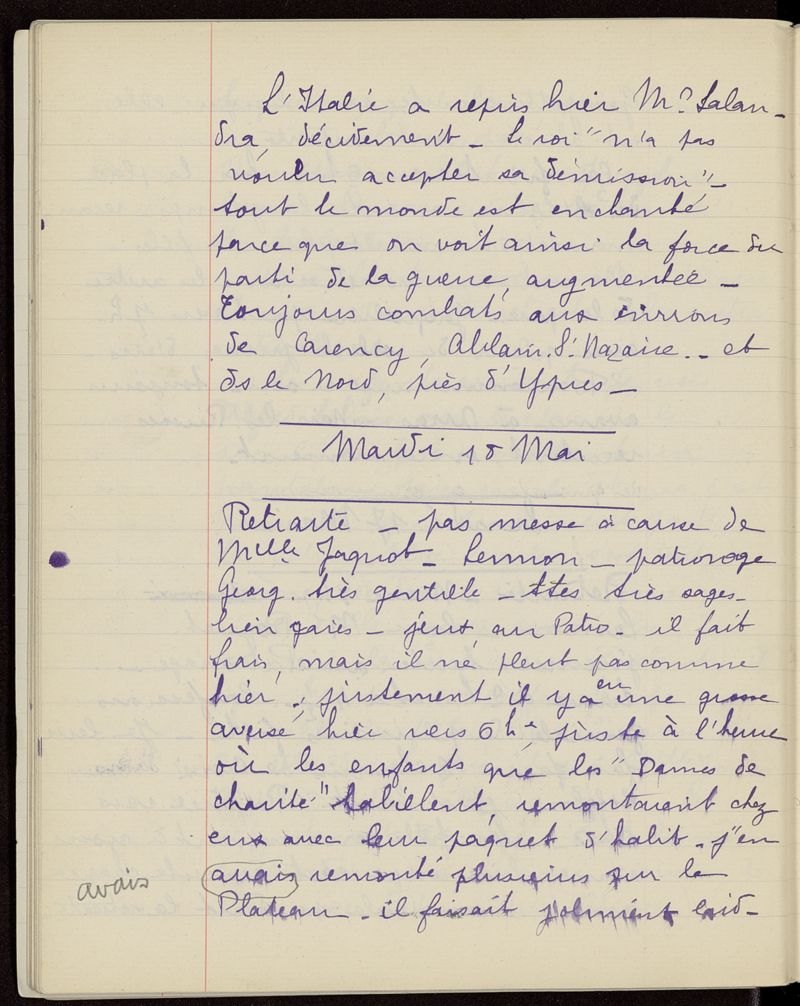 L'Italie a repris hier Mr. Salan-
dra, décidement - le roi "n'a pas
voulu accepter sa démission" -
tout le monde est enchanté
parce que on voit ainsi la force du
parti de la guerre, augmentée -
Toujours combats aux environs
de Carency, Ablain. St. Nazaire.. et
ds le Nord, près d'Ypres -
Mardi 18 Mai
Retraite - pas messe à cause de
Melle Jaquot - Sermon - patronage
Georg. très gentille - ttes très sages -
bien gaies - jeux, au Patro. il fait
frais, mais il ne pleut pas comme
hier. justement il y a eu une grosse
averse, hier vers 6 h juste à l'heure
où les enfants que les "Dames de
charité" habillent, remontaient chez
eux avec leur paquet d'habit. j'en
avais remonté plusieurs sur le
avais
Plateau. il faisait joliment laid -